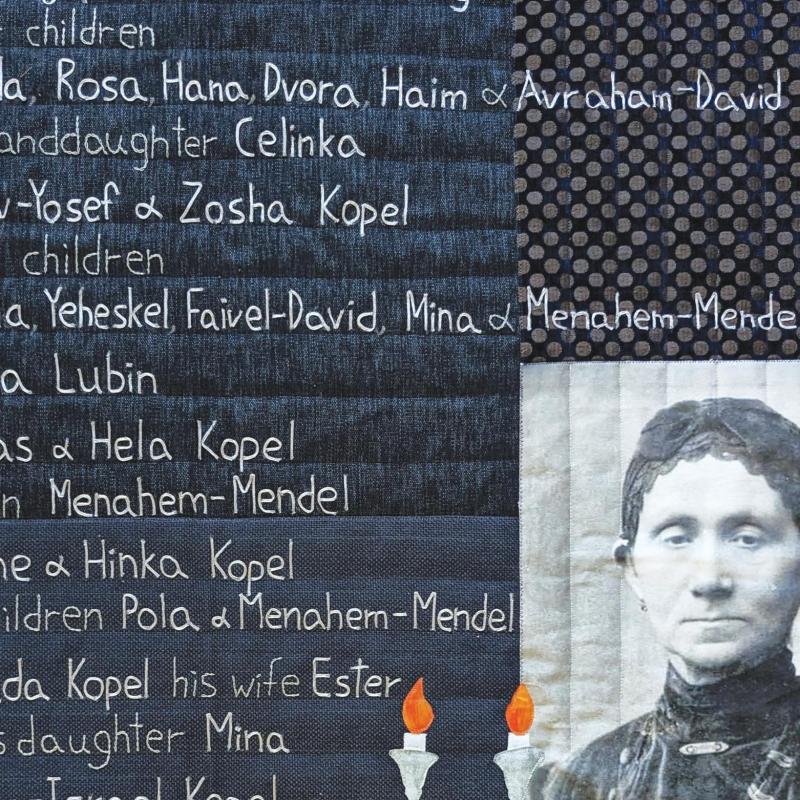 children
Rosa, Hana, Dvora, Haim & Avraham-David
Celinka
-Yosef & Zosha Kopel
children
Yeheskel, Faivel-David, Mina & Menahem-Mende
Lubin
& Hela Kopel
Menahem-Mendel
& Hinka Kopel
Pola & Menahem-Mendel
Kopel his wife Ester
daughter Mina
Kopel